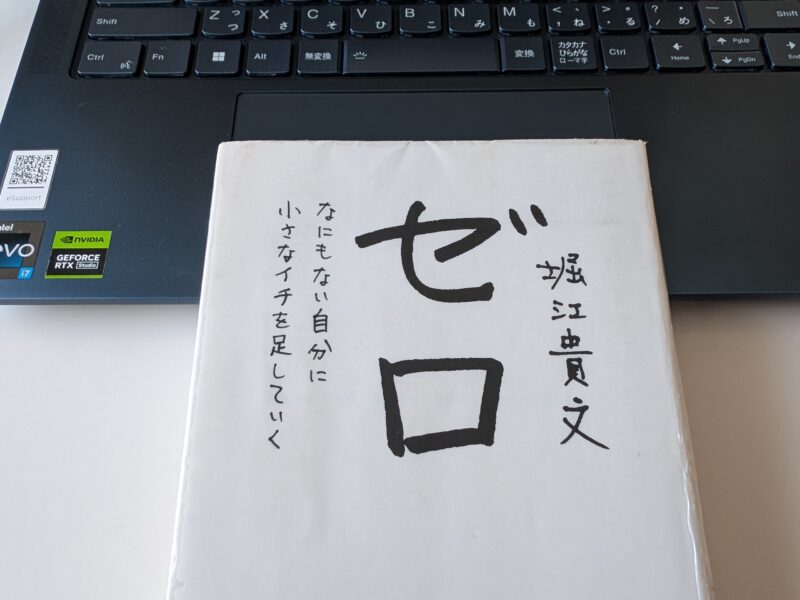 Shift
Z っ つ
X さ
C そ
V ひ
B こ
N み
M も
< 、 , ね
> 。 . る
? ・ / め
_ \ ろ
Shift
Ctrl
Fn
Alt
無変換
変換
カタカナ
ひらがな
ローマ字
Ctrl
Home
PgUp
PgDn
End
eSupport
intel
evo
i7
NVIDIA
GEFORCE
RTX Studio
堀江貴文
ゼロ
なにもない自分に
小さなイチを足していく